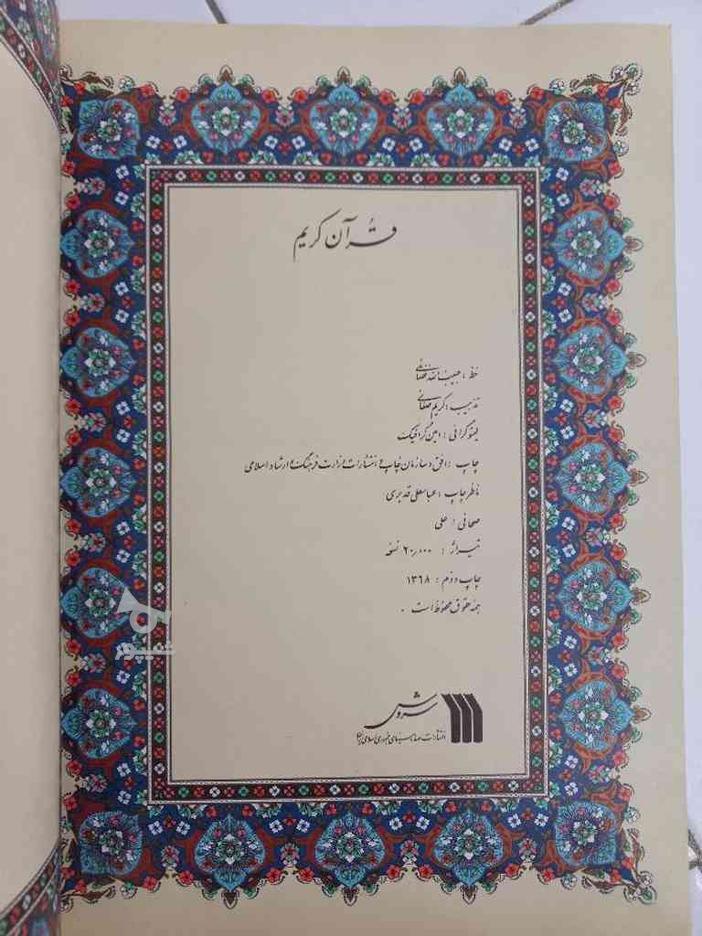 قُرآن کریم
خط : حبیب‌الله فضائلی
تذهیب : کریم صفائی
لیتوگرافی : امین گرافیک
چاپ : افق و سازمان چاپ و انتشارات وزارت فرهنگ و ارشاد اسلامی
ناظر چاپ : عباسعلی قدیری
صحافی : علی
تیراژ : ۲۰٫۰۰۰ نسخه
چاپ دوم : ۱۳۶۸
همه حقوق محفوظ است .
سروش
انتشارات صدا و سیمای جمهوری اسلامی ایران
شیپور